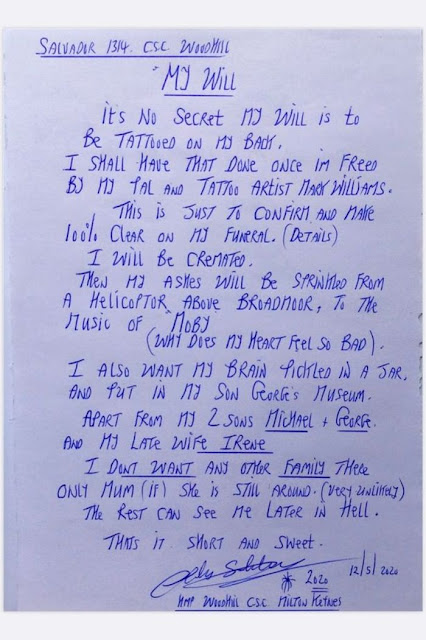 SALVADOR 1314. CSC WOODHILL
"MY WILL
it's NO SECRET MY WILL is to
BE TATTOOED ON MY BACK.
I SHALL HAVE THAT DONE ONCE IM FREED
BY MY PAL AND TATTOO ARTIST MARK WILLIAMS.
THIS IS JUST TO CONFIRM AND MAKE
100% CLEAR ON MY FUNERAL. (DETAILS)
I WILL BE CREMATED.
THEN MY ASHES WILL BE SPRINKLED FROM
A HELICOPTOR ABOVE BROADMOOR, TO THE
MUSIC OF "MOBY
(WHY DOES MY HEART FEEL SO BAD).
I ALSO WANT MY BRAIN PICKLED IN A JAR,
AND PUT IN MY SON GEORGE'S MUSEUM.
APART FROM MY 2 SONS MICHAEL + GEORGE.
AND MY LATE WIFE IRENE
I DONT WANT ANY OTHER FAMILY THERE
ONLY MUM (IF) SHE IS STILL AROUND. (VERY UNLIKELY)
THE REST CAN SEE ME LATER IN HELL.
THATS IT SHORT AND SWEET.
2020 12/5/2020
HMP WOODHILL CSC MILTON KEYNES